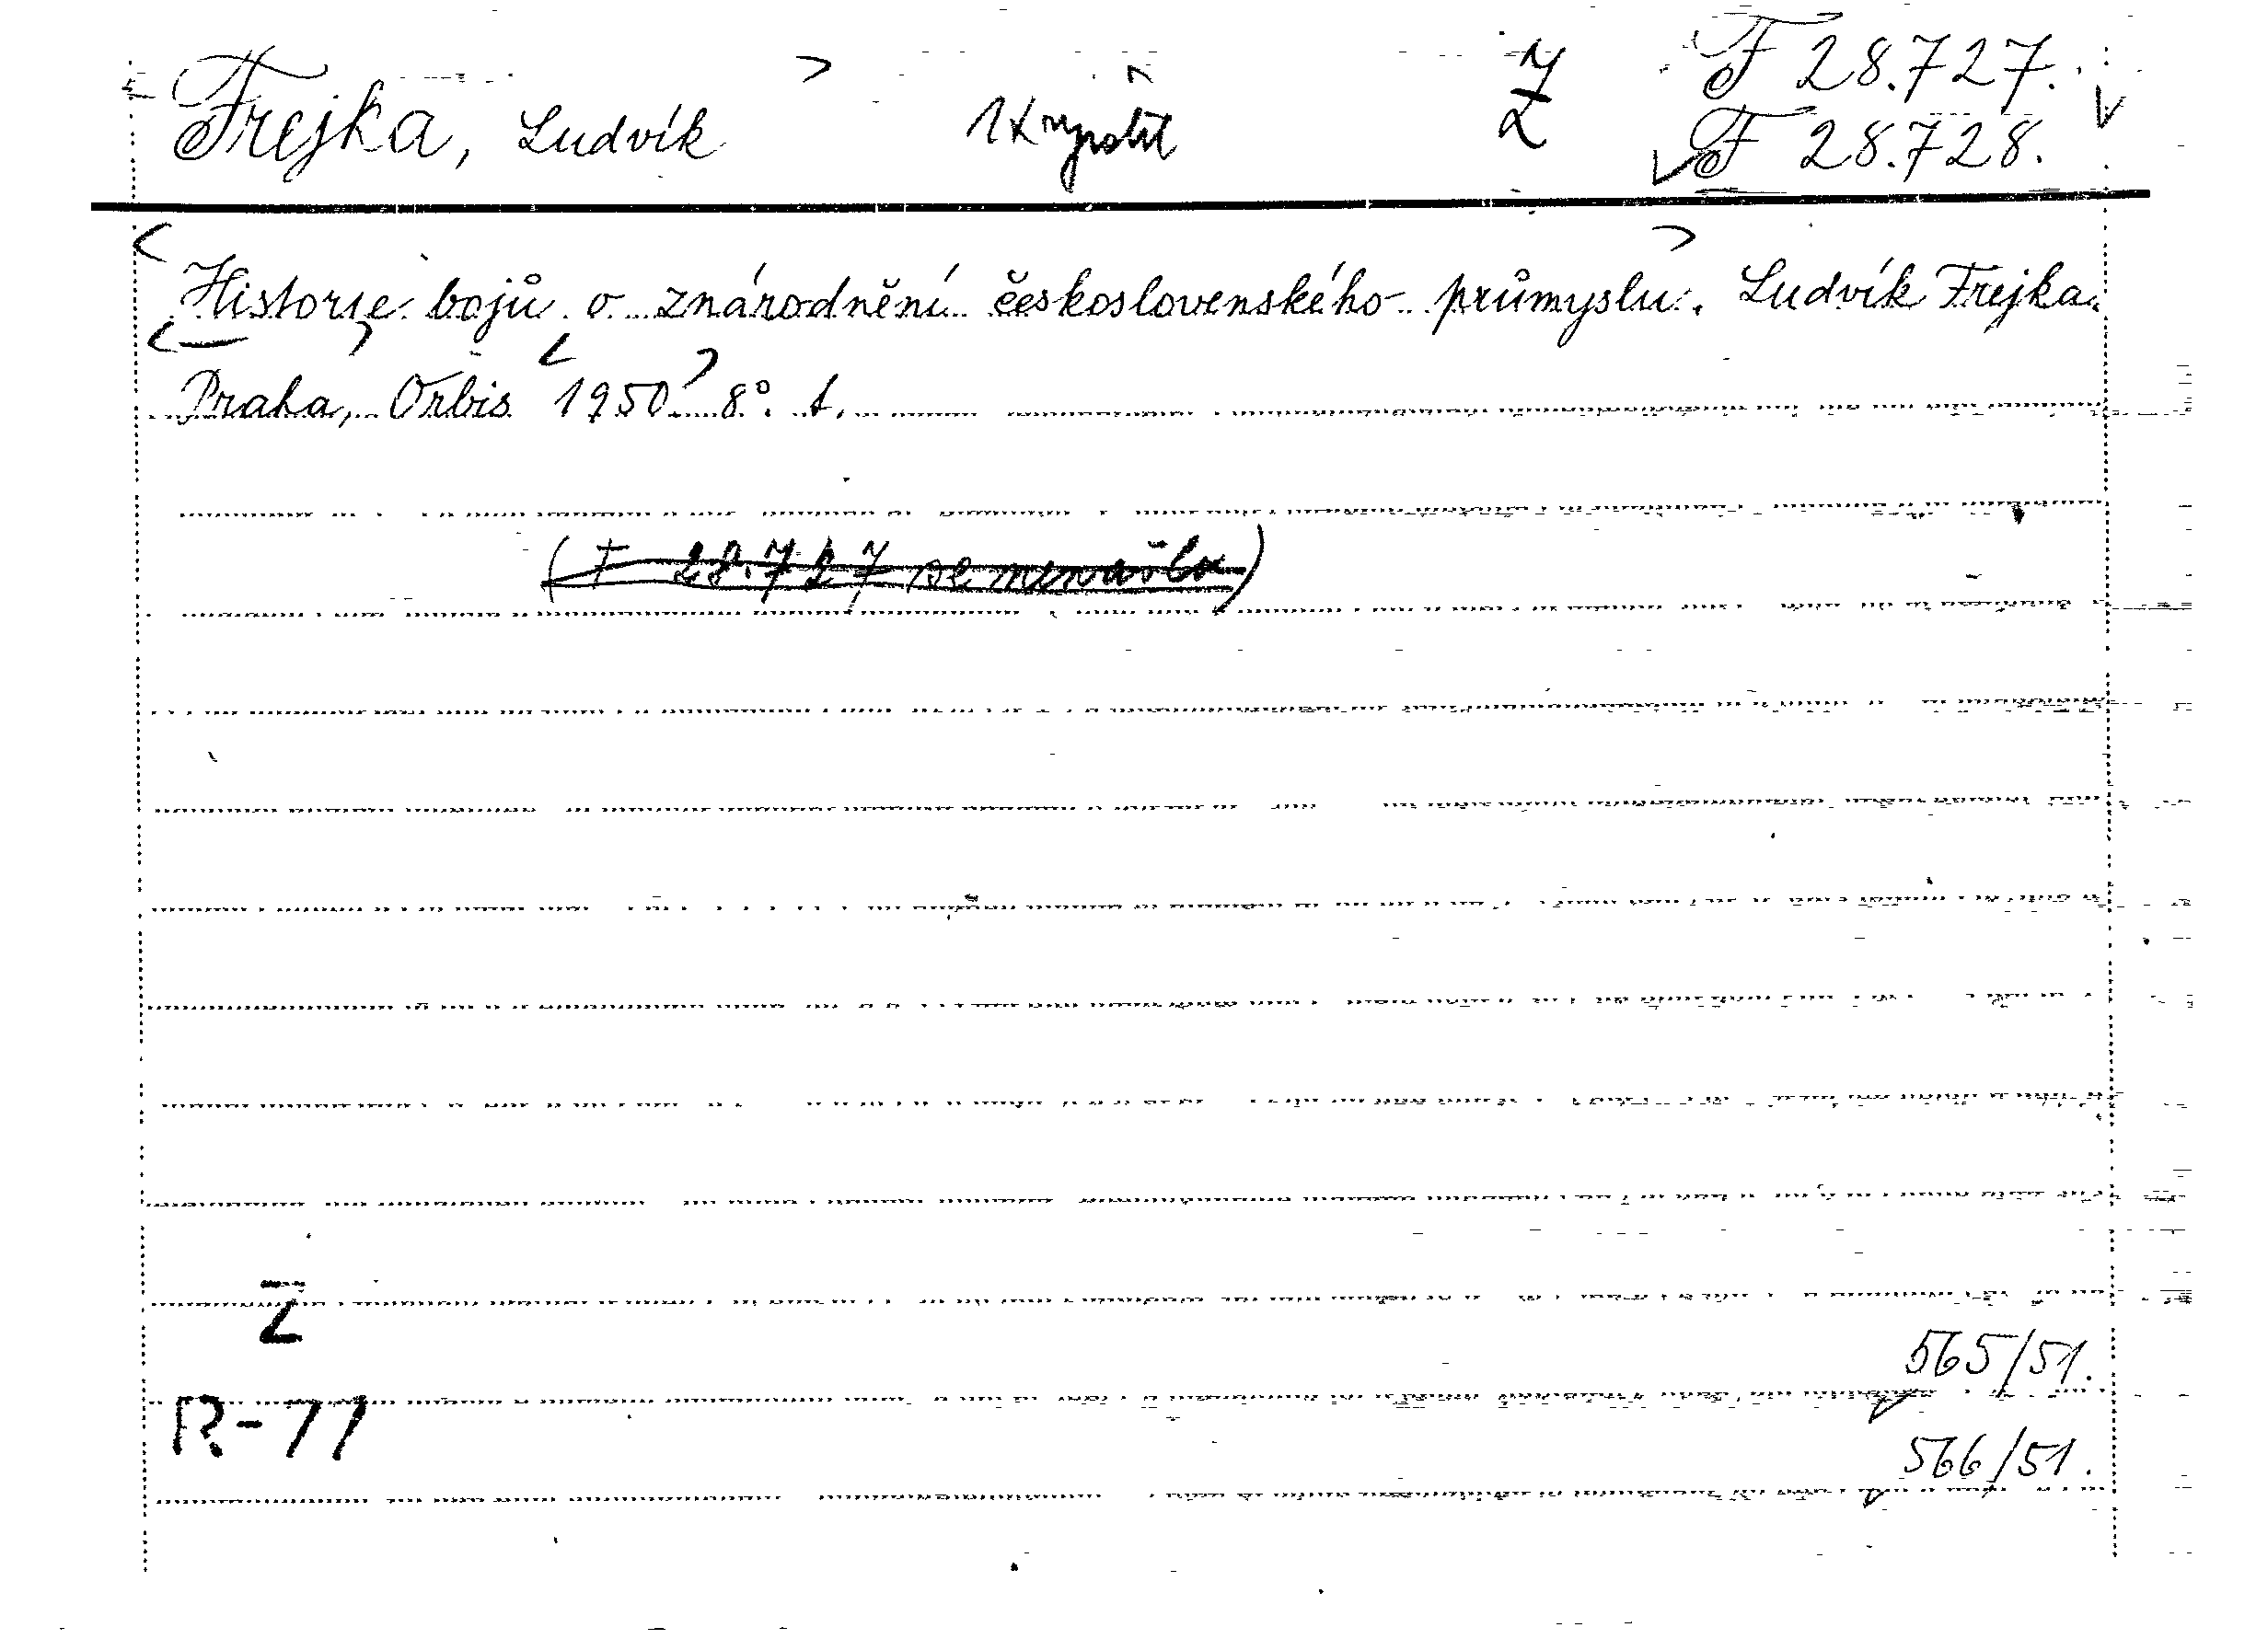 Frejka, Ludvík 1x Z F 28.727.
F 28.728.
Historie bojů o znárodnění československého průmyslu. Ludvík Frejka.
Praha, Orbis 1950. 8°. t.
(F 28.727 se nenašla)
Z
565/51.
R-71
566/51.